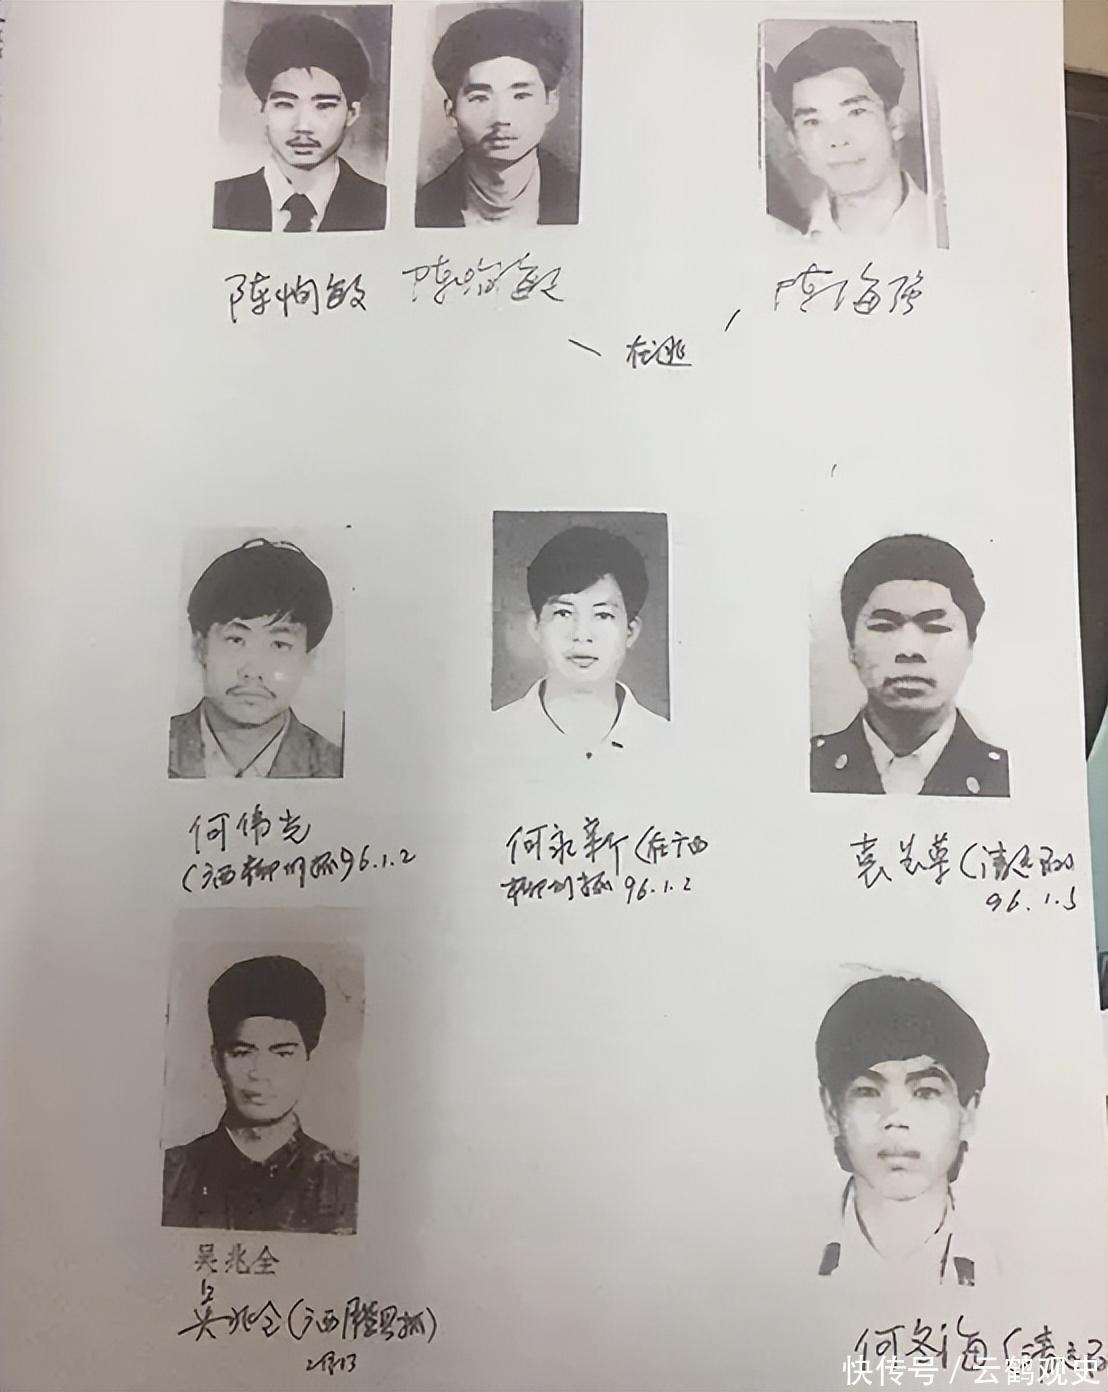 陈恂敏 陈恂敏 陈海强
在逃
何伟光
(广西柳州抓96.1.2
何永新(在广西
柳州抓 96.1.2
袁
96.1.5
吴兆全
吴兆全(广西 抓)
2月13
何冬海(清
快传号/云鹤观史